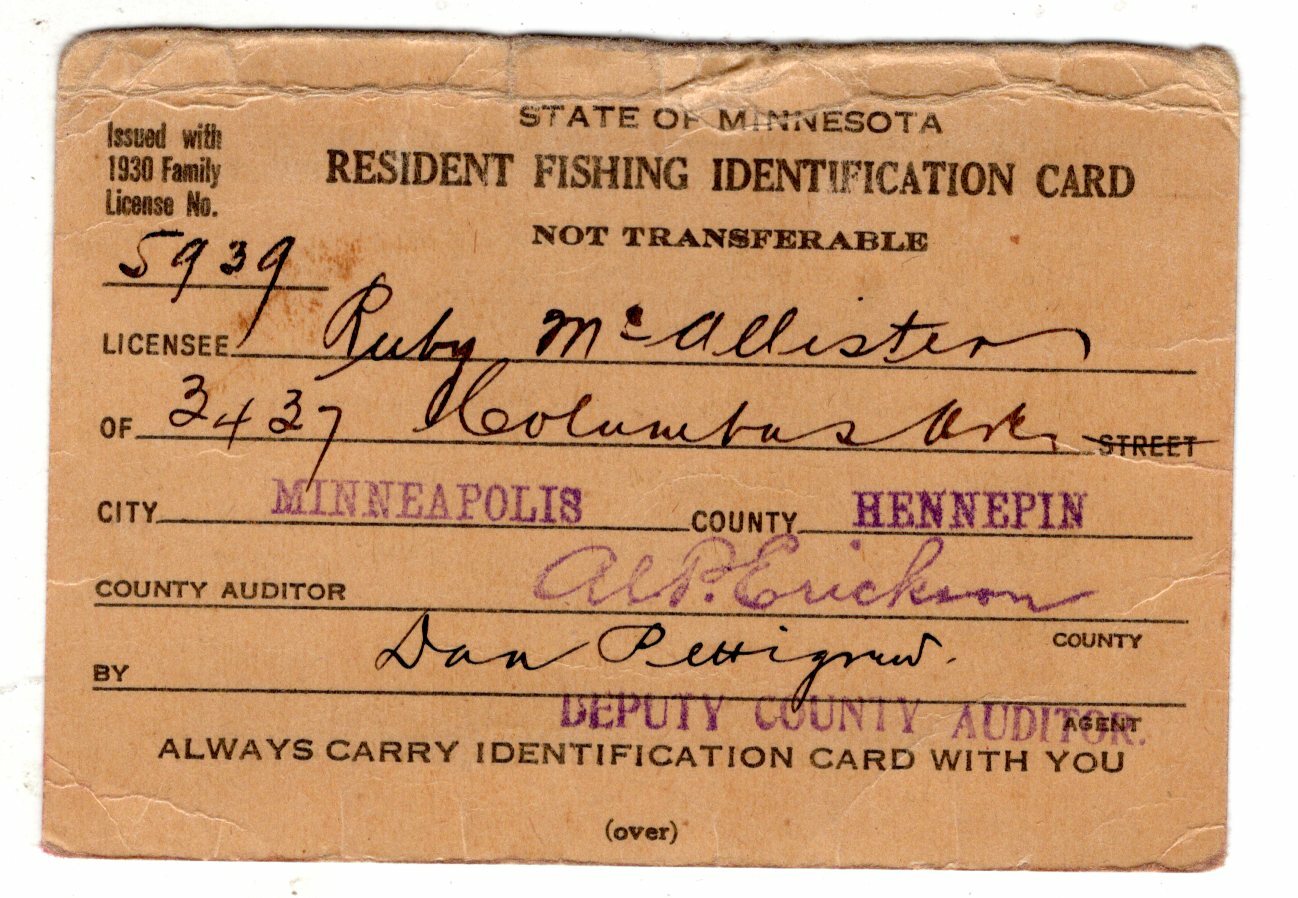 STATE OF MINNESOTA
Issued with
1930 Family
License No.
5939
RESIDENT FISHING IDENTIFICATION CARD
NOT TRANSFERABLE
LICENSEE Ruby McAllister
OF 3437 Columbus Ave. STREET
CITY MINNEAPOLIS COUNTY HENNEPIN
COUNTY AUDITOR Al P. Erickson
COUNTY
BY Dan Pettigrew.
DEPUTY COUNTY AUDITOR.
AGENT
ALWAYS CARRY IDENTIFICATION CARD WITH YOU
(over)